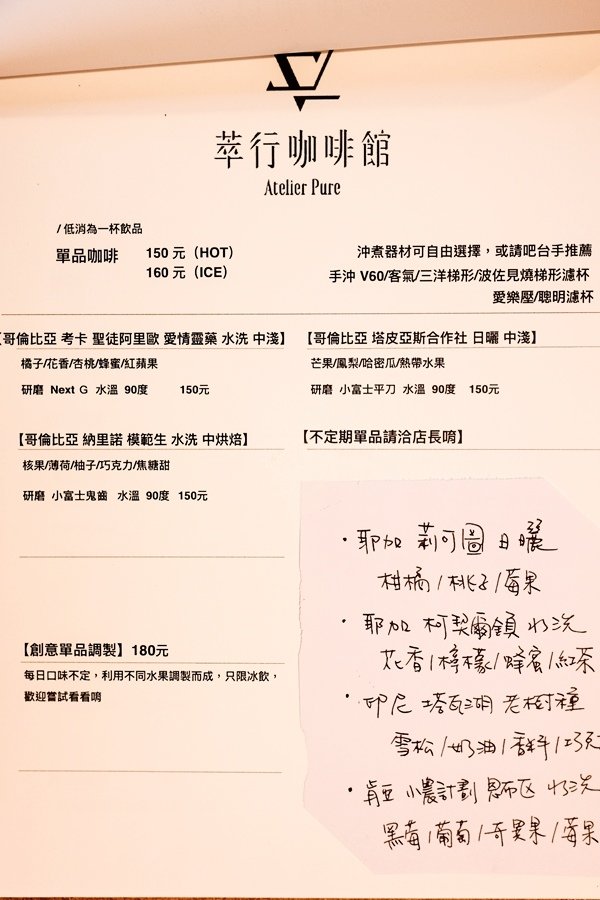 萃行咖啡館
Atelier Pure
/低消為一杯飲品
單品咖啡 150 元（HOT）
160 元（ICE）
沖煮器材可自由選擇，或請吧台手推薦
手沖 V60/客氣/三洋梯形/波佐見燒梯形濾杯
愛樂壓/聰明濾杯
【哥倫比亞 考卡 聖徒阿里歐 愛情靈藥 水洗 中淺】
橘子/花香/杏桃/蜂蜜/紅蘋果
研磨 Next G 水溫 90度 150元
【哥倫比亞 塔皮亞斯合作社 日曬 中淺】
芒果/鳳梨/哈密瓜/熱帶水果
研磨 小富士平刀 水溫 90度 150元
【哥倫比亞 納里諾 模範生 水洗 中烘焙】
核果/薄荷/柚子/巧克力/焦糖甜
研磨 小富士鬼齒 水溫 90度 150元
【不定期單品請洽店長唷】
【創意單品調製】180元
每日口味不定，利用不同水果調製而成，只限冰飲，
歡迎嘗試看看唷
·耶加 莉可圖 日曬
柑橘/桃子/莓果
·耶加 柯契爾鎮 水洗
花香/檸檬/蜂蜜/紅茶
·印尼 塔瓦湖 老樹種
雪松/奶油/香料/巧克
·肯亞 小農計劃 恩布区 水洗
黑莓/葡萄/奇異果/莓果